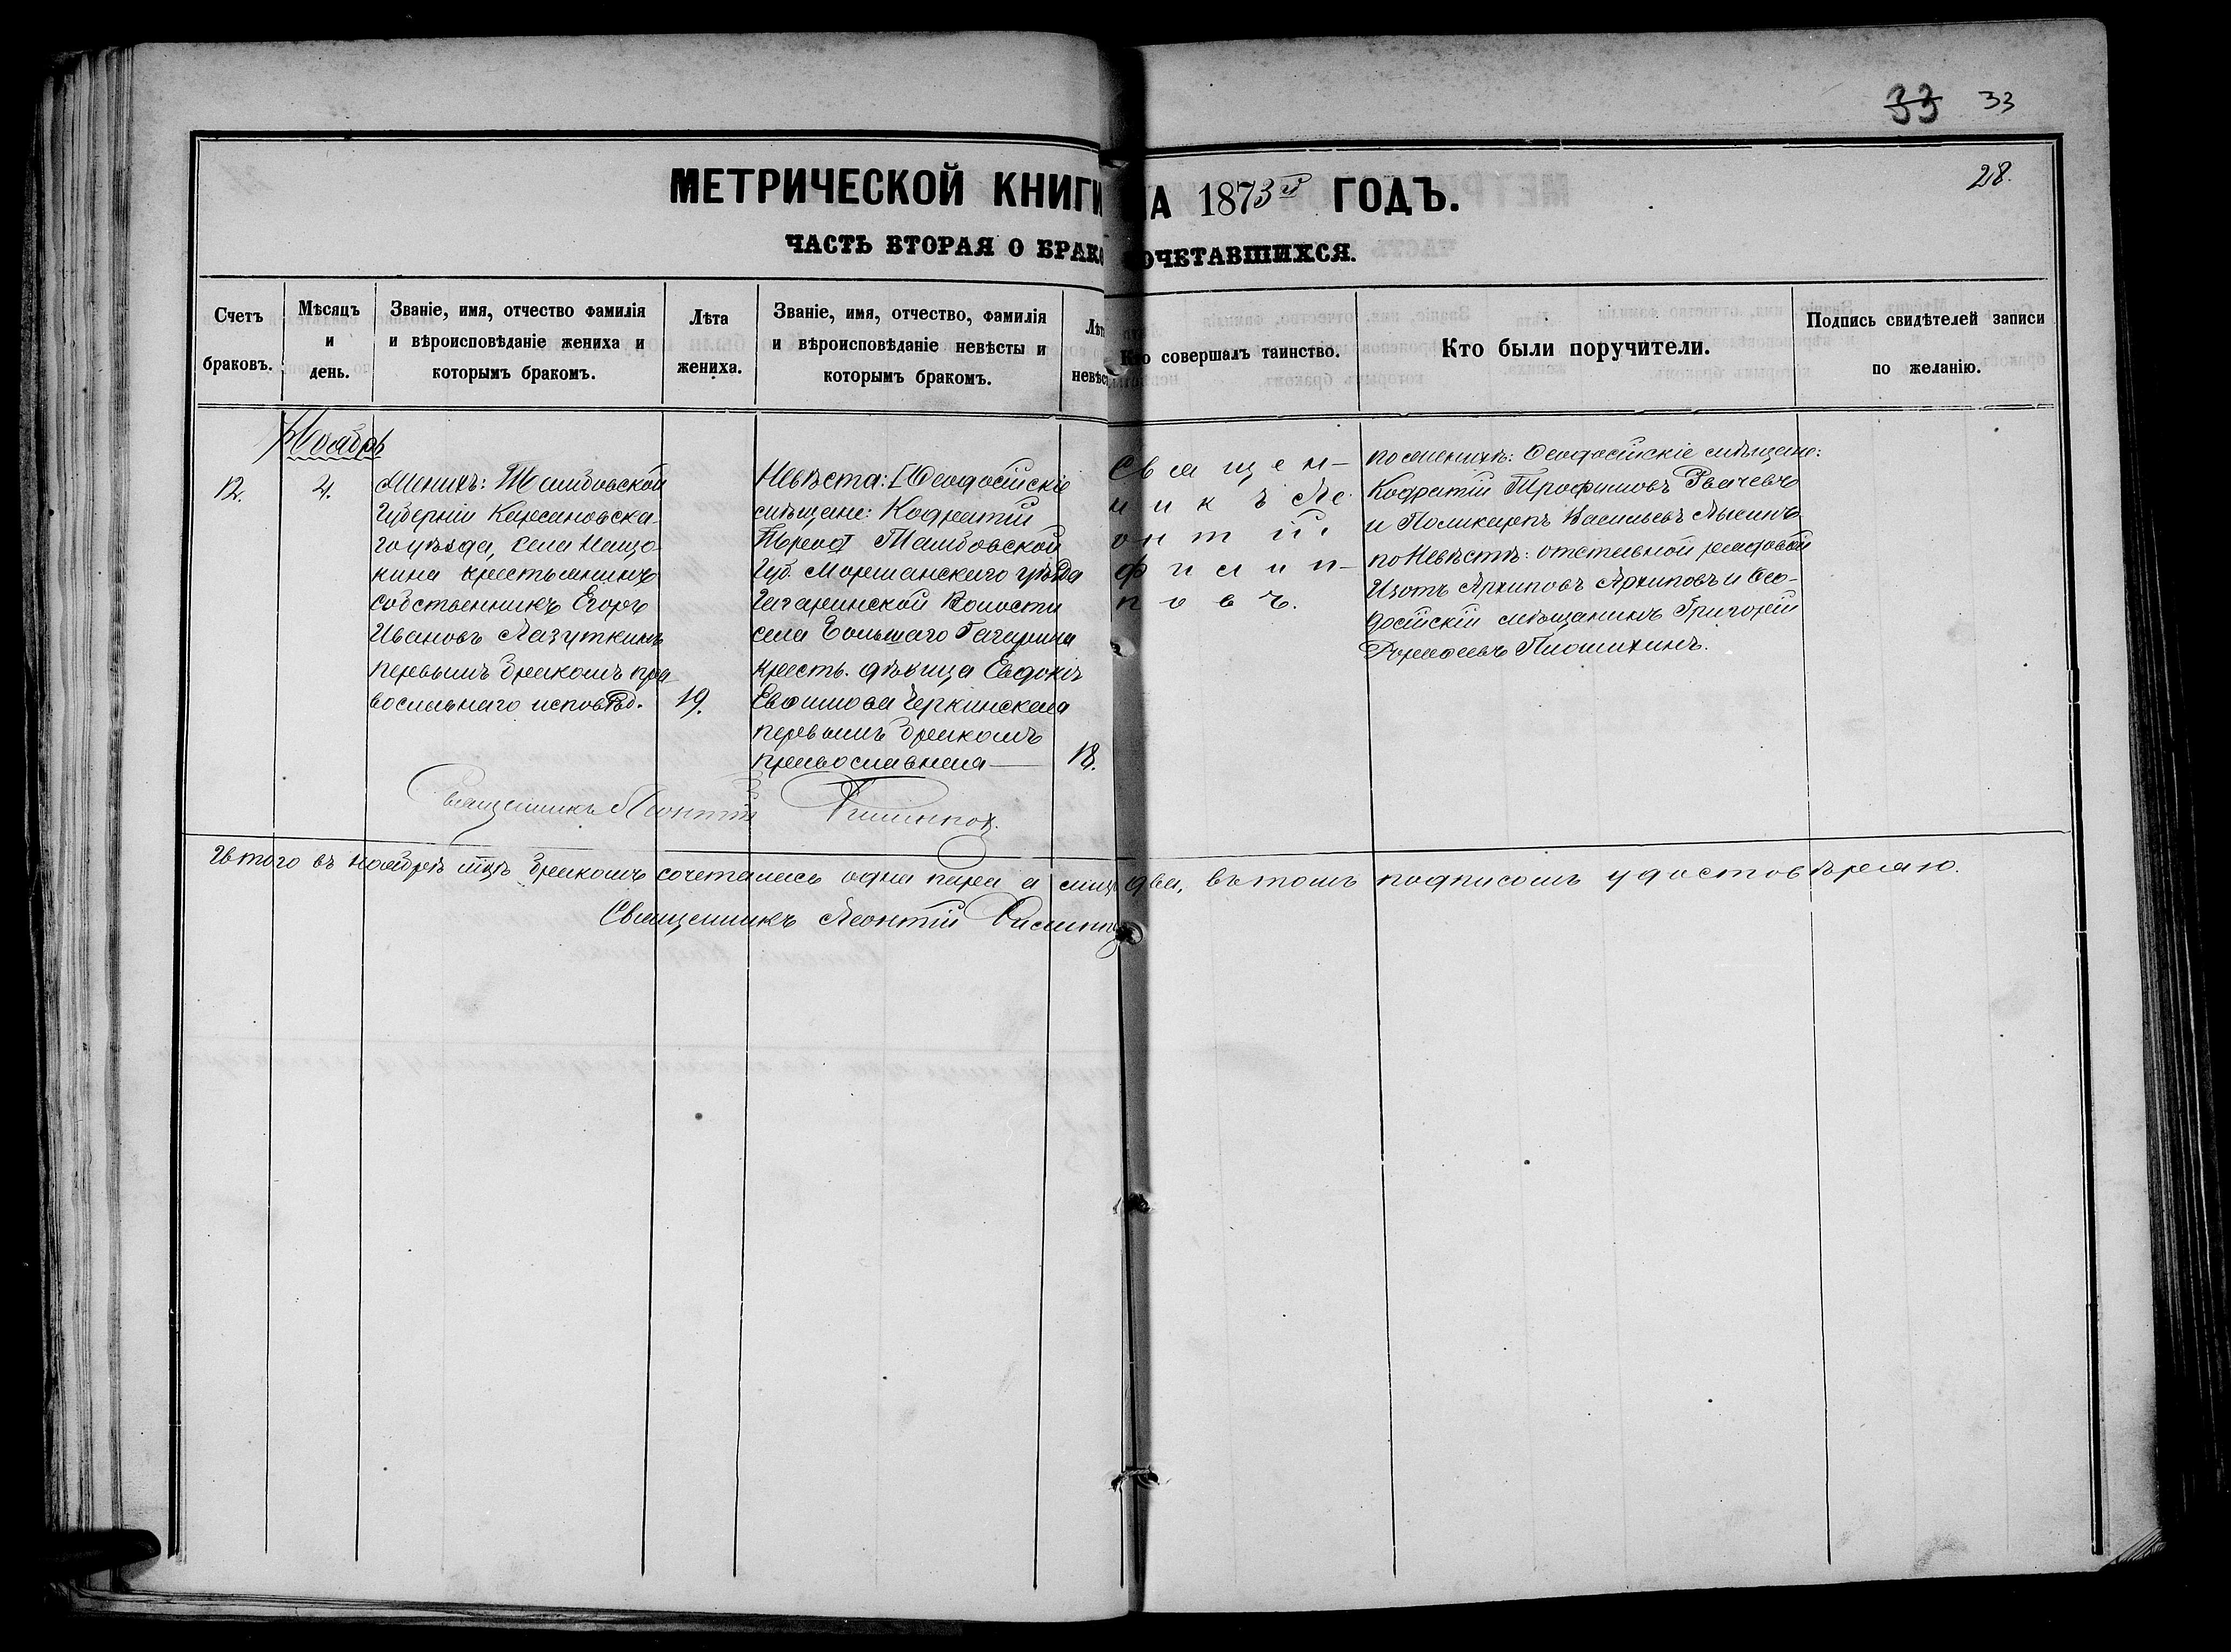 33 33
28.
МЕТРИЧЕСКОЙ КНИГИ НА 1873й ГОДЪ.
ЧАСТЬ ВТОРАЯ О БРАКОСОЧЕТАВШИХСЯ.
Счетъ браковъ.
Мѣсяцъ и день.
Званіе, имя, отчество фамилія и вѣроисповѣданіе жениха и которымъ бракомъ.
Лѣта жениха.
Званіе, имя, отчество, фамилія и вѣроисповѣданіе невѣсты и которымъ бракомъ.
Лѣта невѣсты
Кто совершалъ таинство.
Кто были поручители.
Подпись свидѣтелей записи по желанію.
Ноябрь
12.
4.
Женихъ: Тамбовской
Губерніи Карсановска-
го уѣзда, села Нащо-
кина крестьянинъ
собственникъ Егоръ
Ивановъ Лазуткинъ
первымъ бракомъ пра
вославнаго исповѣд.
19.
Невѣста: [Феодосійскіе
мѣщане: Кодратій
Тамбовской
Губ. Моршанскаго уѣзда
Гагаринской Волости
села Большаго Гагарина
кресть. дѣвица Евдокія
Евфимова Черкинская
первымъ бракомъ
православная —
18.
Священ-
никъ Ле-
онтій
Филип-
повъ.
по женихѣ: Феодосійскіе мѣщане:
Кодратій Трофимовъ Рвачевъ
и Поликарпъ Васильевъ Лысинъ
по Невѣстѣ: отставной рядовой
Изотъ Архиповъ Архиповъ и Фео-
досійскій мѣщанинъ Григорій
Плошихинъ.
Священникъ Леонтій Филиппов.
Итого въ ноябрѣ мцѣ бракомъ сочеталась одна пара а лицъ два, въ томъ подписомъ удостовѣряю.
Священникъ Леонтій Филиппов